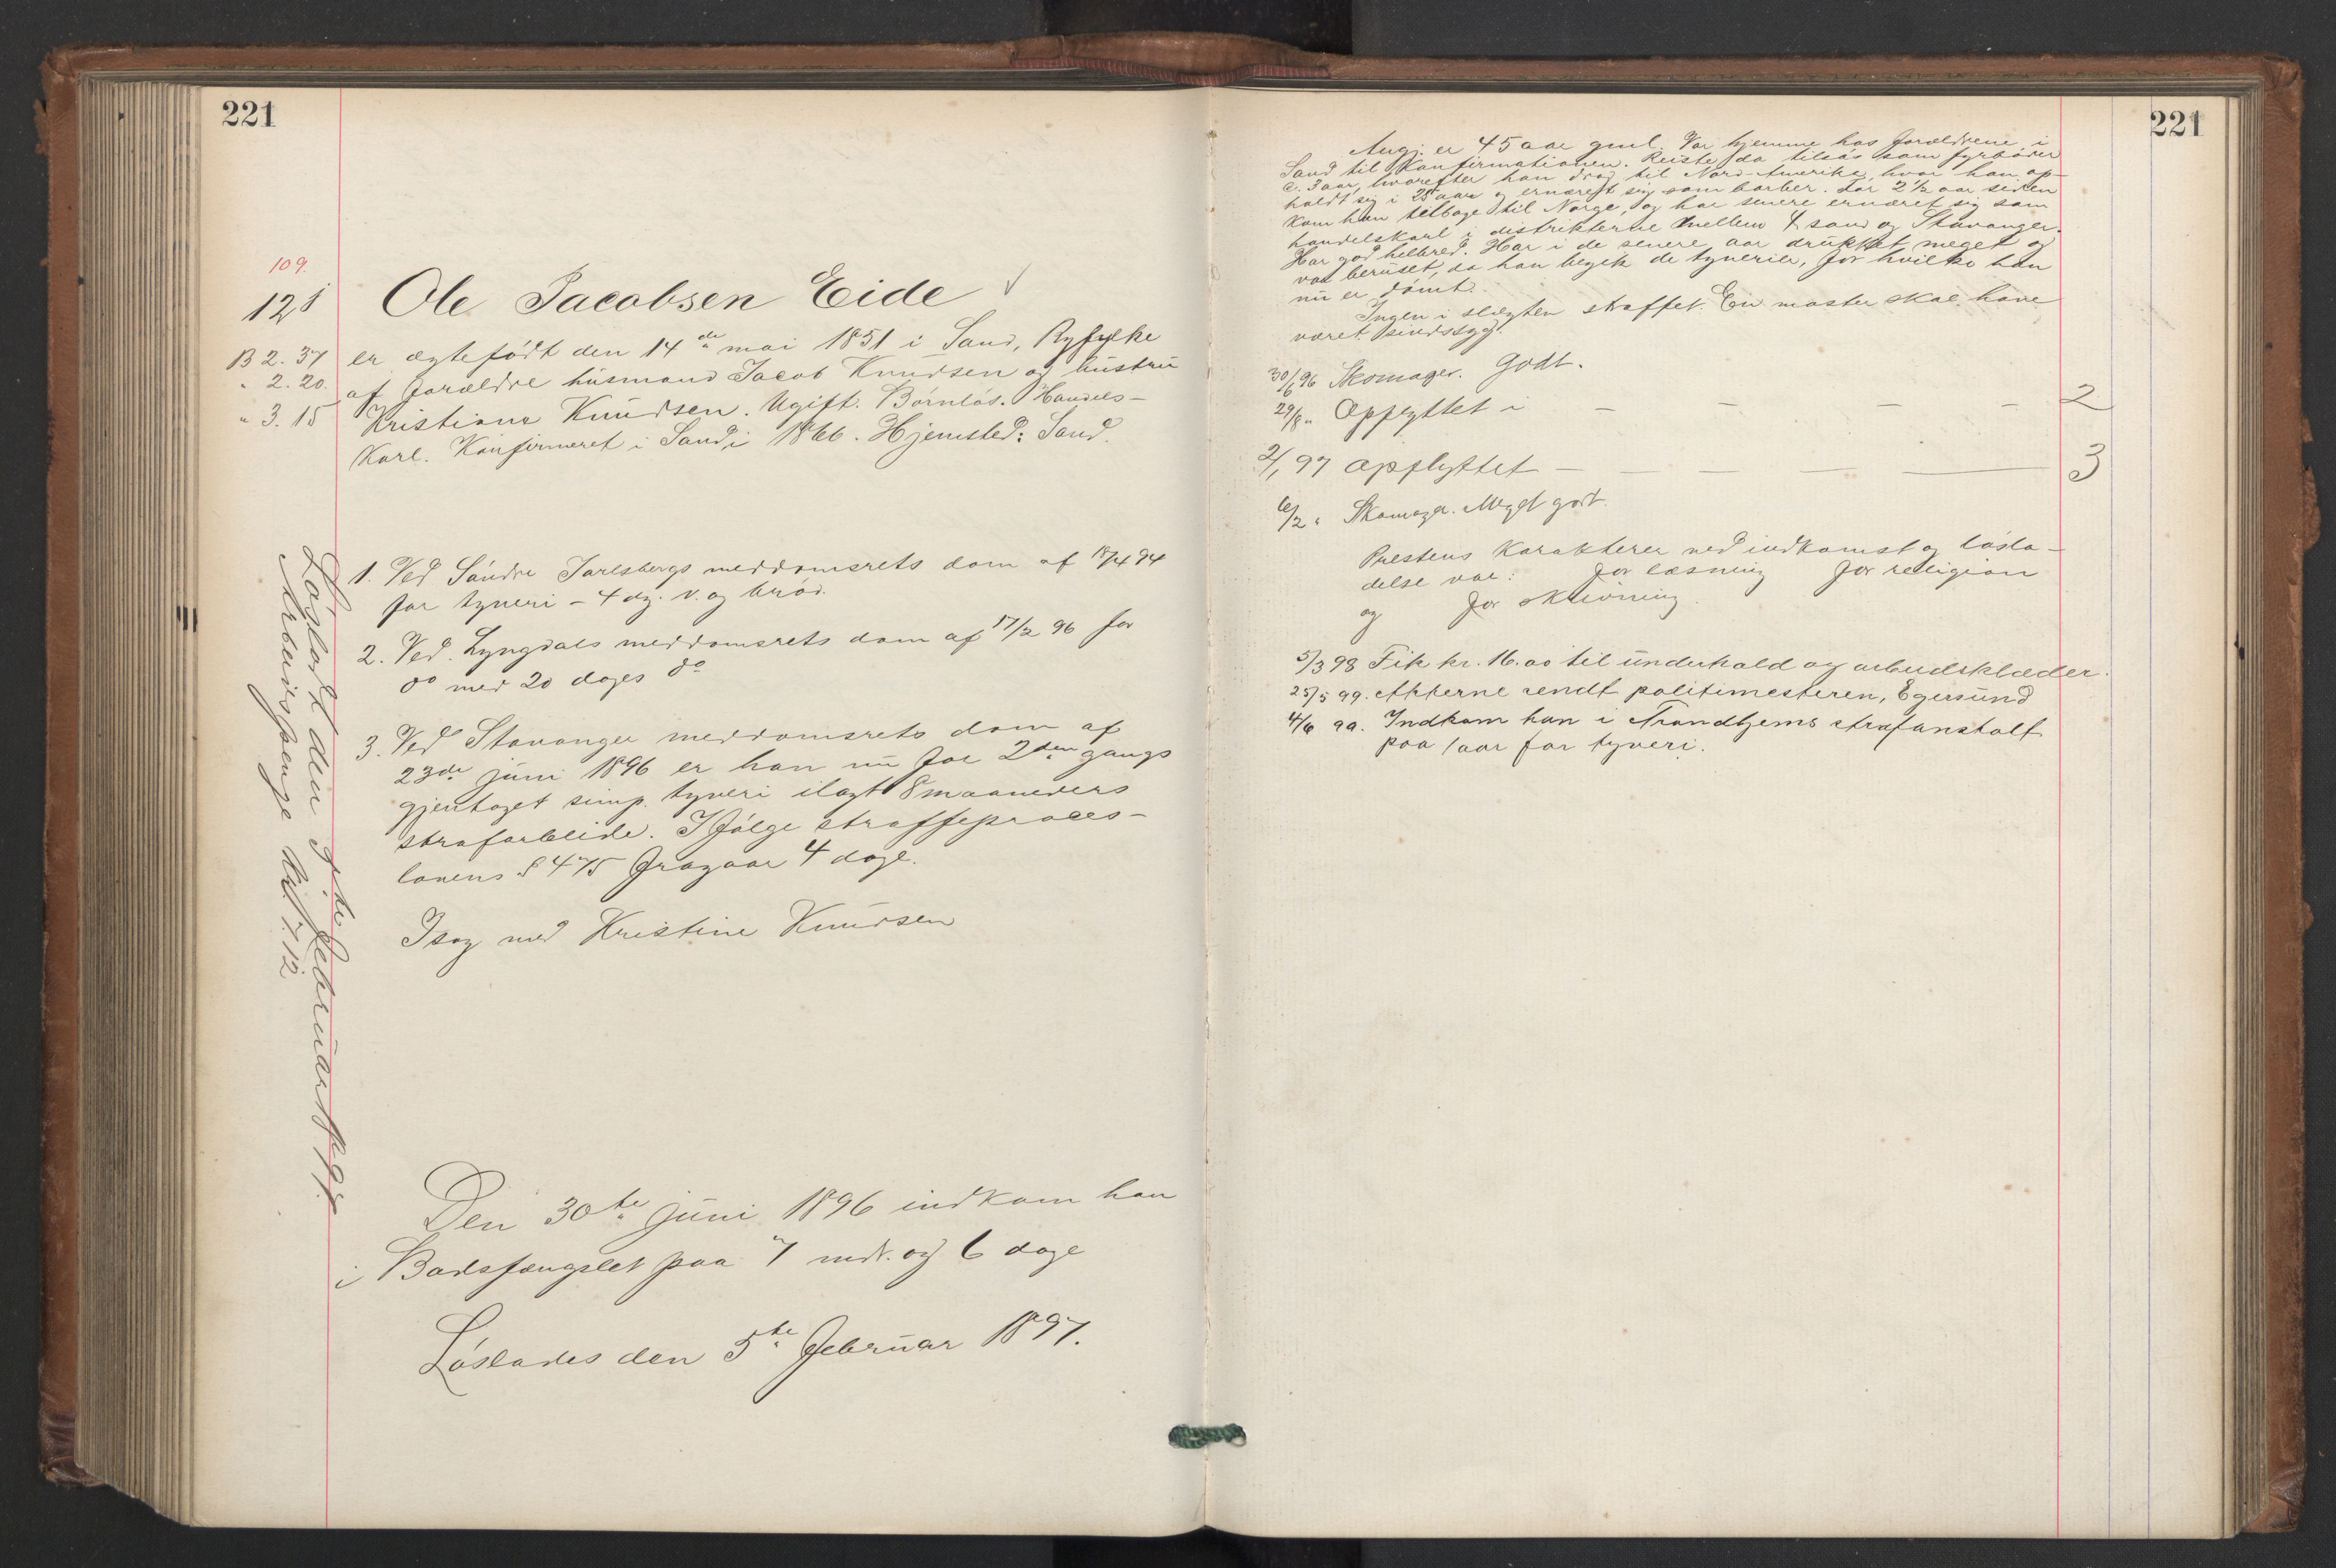 221
109.
121
Ole Jacobsen Eide
B 2. 37
" 2. 20.
" 3. 15
er ægtefødt den 14de mai 1851 i Sand, Ryfylke
af forældre husmand Jacob Knudsen og hustru
Kristiane Knudsen. Ugift. Børnløs. Handels-
karl. Konfirmeret i Sand i 1866. Hjemsted: Sand.
1. Ved Søndre Jarlsbergs meddomsrets dom af 18/4 94
for tyveri - 4 dg. v. og brød.
2. Ved Lyngdals meddomsrets dom af 17/2 96 for
do med 20 dages do
3. Ved Stavanger meddomsrets dom af
23de juni 1896 er han nu for 2den gangs
gjentaget simp. tyveri ilagt 8 maaneders
strafarbeide. Ifølge straffeproces-
lovens § 475 fragaar 4 dage.
I sag med Kristine Knudsen
Løsladt den 5te februar 1897.
Arbeidspenge kr. 7.12
Den 30te juni 1896 indkom han
i Bodsfængslet paa 7 mdr. og 6 dage
Løslades den 5te februar 1897.
221
Angj. er 45 aar gml. Var hjemme hos forældrene i
Sand til konfirmationen. Reiste da tilsøs som fyrbøder
c. 3 aar, hvorefter han drog til Nord-Amerika, hvor han op-
holdt sig i 25 aar og ernæret sig som barber. For 2 1/2 aar siden
kom han tilbage til Norge, og har senere ernæret sig som
handelskarl i distrikterne mellem Xsand og Stavanger.
Har god helbred. Har i de senere aar drukket meget og
var beruset, da han begik de tyverier, for hvilke han
nu er dømt.
Ingen i slægten straffet. En moster skal have
været sindssyg.
30/6 96 Skomager. Godt.
29/8 " Opflyttet i - - - - 2
2/1 97 Opflyttet - - - - - 3
6/2 " Skomager. Meget godt.
Prestens karakterer ved indkomst og løsla-
delse var: for læsning for religion
og for skrivning.
5/3 98 Fik kr. 16.00 til underhold og arbeidsklæder.
25/5 99. Akterne sendt politimesteren, Egersund
4/6 99. Indkom han i Trondhjems strafanstalt
paa 1 aar for tyveri.